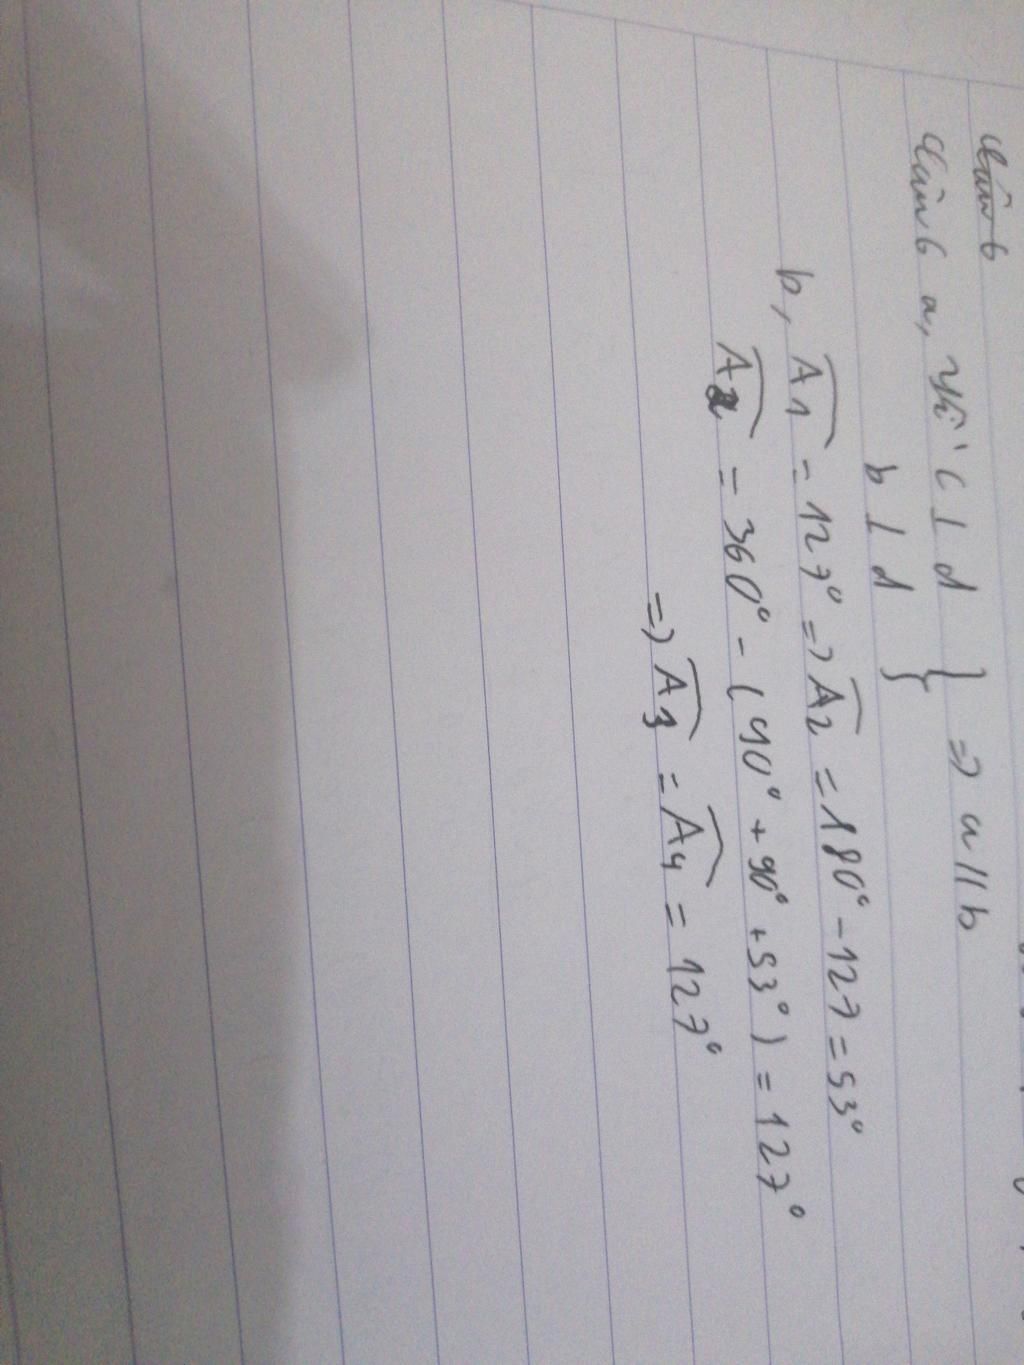 Câu 6
Câu 6 a, Vì c ⊥ d } => a // b
b ⊥ d }
b, A1 = 127° => A2 = 180° - 127 = 53°
A2 = 360° - (90° + 90° + 53°) = 127°
=> A3 = A4 = 127°